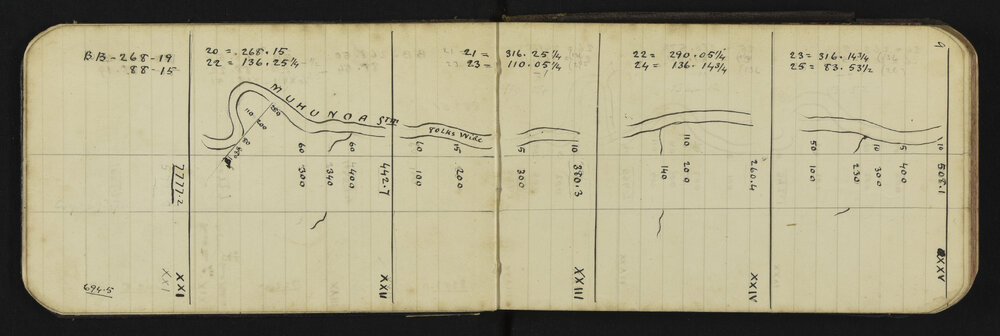 9
BB - 268 - 19
88 - 15
20 = 268 . 15
22 = 136 . 25¼
21 = 316 . 25¼
23 = 110 . 05¼
22 = 290 . 05¼
24 = 136 . 14¾
23 = 316 . 14¾
25 = 83 . 53½
MUHUNOA STM
70 Lks Wide
110
200
250
50
60
300
340
60
400
442.7
20
100
15
200
5
300
10
380.3
140
110
200
260.4
50
100
230
10
300
15
400
10
508.1
7777.2
694.5
XXI
XXI
XXII
XXIII
XXIV
XXV